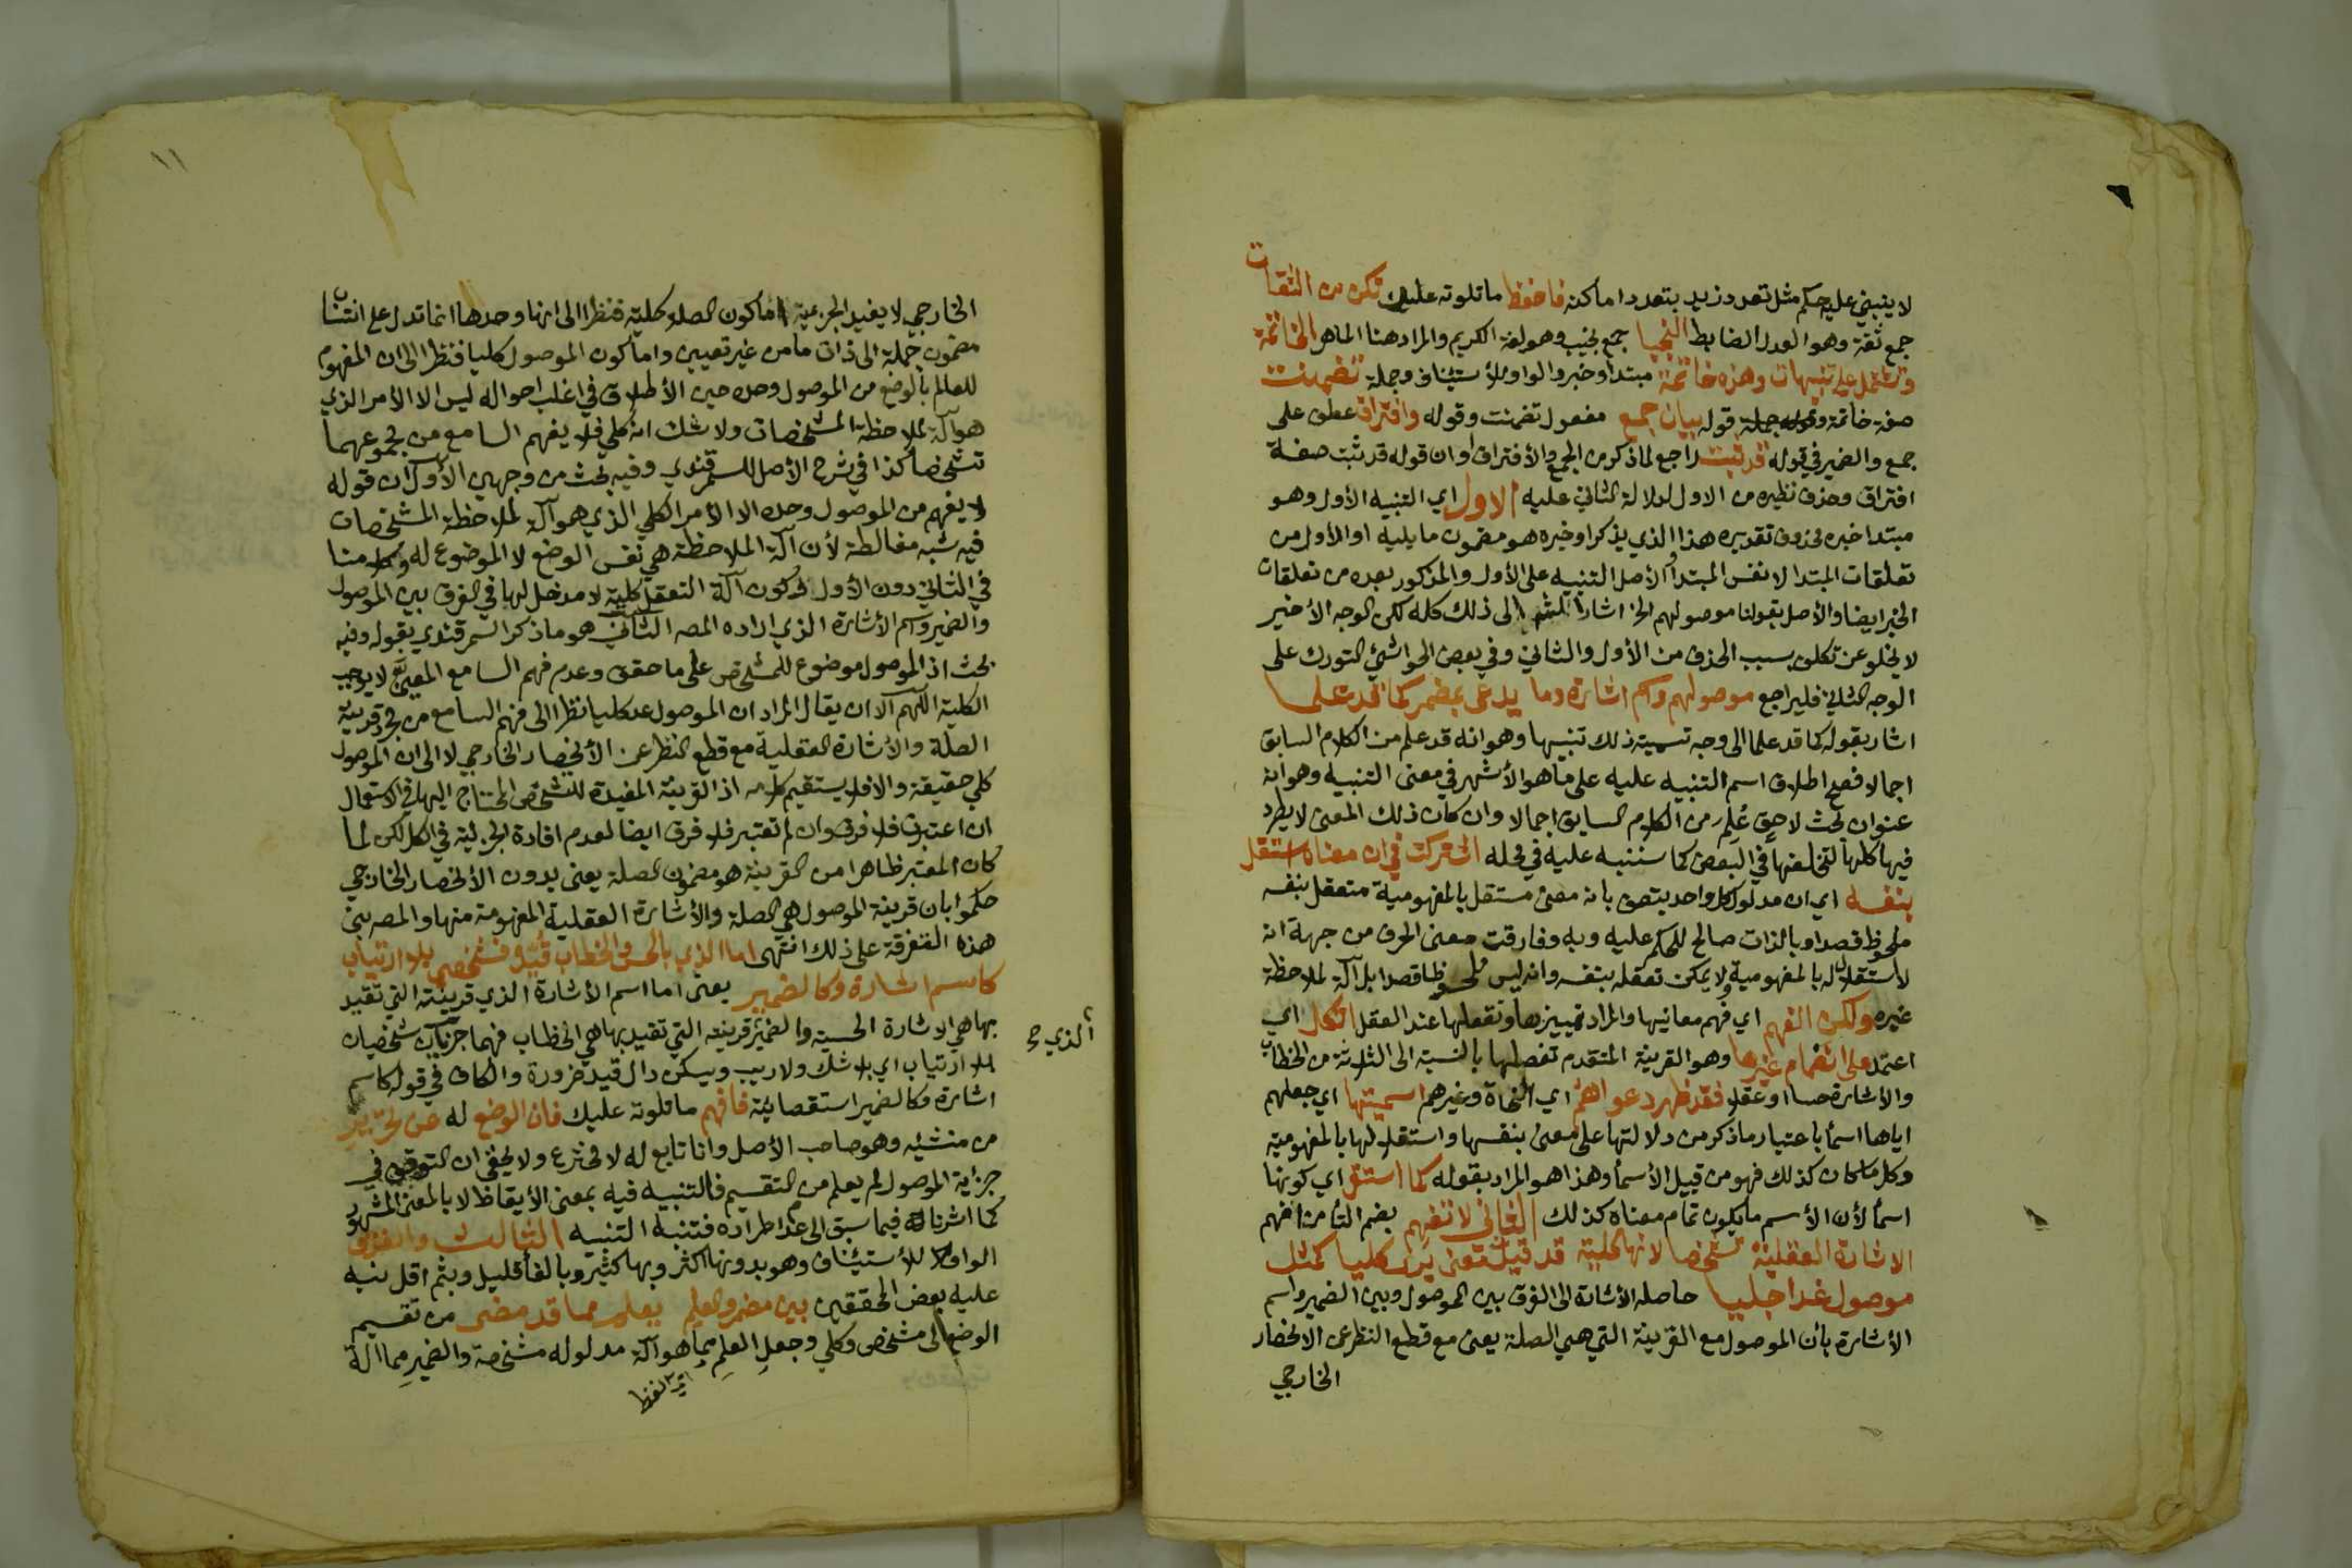 لا ينبني عليه حكم مثل تعدد زيد بتعدد اماكنه فاحفظ ما تلوته عليك تكن من الثقات
جمع ثقة وهو العدل الضابط النجبا جمع نجيب وهو لغة الكريم والمراد هنا الماهر الخاتمة
وتشتمل على تنبيهات وهذه خاتمة مبتدا وخبر والواو للأستيناف وجملة تضمنت
صفة خاتمة وقوله بيان جمع مفعول تضمنت وقوله وافتراق عطف على
جمع والضمير في قوله قد ثبت راجع لما ذكر من الجمع والأفتراق او ان قوله قد ثبت صفة
افتراق وحذف نظيره من الاول لدلالة الثاني عليه الاول اي التنبيه الأول وهو
مبتدا خبره محذوف تقديره هذا الذي يذكر او خبره هو مضمون ما يليه او الأول من
تعلقات المبتدا لا نفس المبتدا والأصل التنبيه على الأول والمذكور بعده من تعلقات
الخبر ايضا والأصل بقولنا موصولهم الخ اشار الى ذلك كله لكن الوجه الأخير
لا يخلو عن تكلف بسبب الحذف من الأول والثاني وفي بعض الحواشي التورك على
الوجه الثاني فليراجع موصولهم واسم اشارة وما يدعى بمضمر كما قد علما
اشار بقوله كما قد علما الى وجه تسمية ذلك تنبيها وهو انه قد علم من الكلام السابق
اجمالا فصح اطلاق اسم التنبيه عليه على ما هو الأشهر في معنى التنبيه وهو انه
عنوان بحث لاحق عُلِمَ من الكلام السابق اجمالا وان كان ذلك المعنى لا يطرد
فيها كلها لتخلفها في البعض كما سننبه عليه في محله اشتركت في ان معناه استقل
بنفسه اي ان مدلول كل واحد يتصف بانه معنى مستقل بالمفهومية متعقل بنفسه
ملحوظ قصدا وبالذات صالح للحكم عليه وبه وفارقت معنى الحرف من جهة انه
لا استقلال له بالمفهومية ولا يمكن تعقله بنفسه وانه ليس ملحوظا قصدا بل آلة لملاحظة
غيره ولكن الفهم اي فهم معانيها والمراد تمييزها وتعقلها عند العقل اتكل اي
اعتمد على انضمام غيرها وهو القرينة المتقدم تفصيلها بالنسبة الى الثلاثة من الخطاب
والأشارة حسا وعقلا فقد ظهر دعواهم اي النحاة وغيرهم اسميتها اي جعلهم
اياها اسمأ باعتبار ما ذكر من دلالتها على معنى بنفسها واستقلالها بالمفهومية
وكل ما كان كذلك فهو من قبيل الأسمأ وهذا هو المراد بقوله كما استقل اي كونها
اسمأ لأن الأسم ما يكون تمام معناه كذلك الثاني لا تفهم بضم التأ من افهم
الاشارة العقلية تشخصا لانها كلية قد قيدت معنى يرى كليا كمثل
موصول غدا جليا حاصله الأشارة الى الفرق بين الموصول وبين الضمير واسم
الأشارة بأن الموصول مع القرينة التي هي الصلة يعنى مع قطع النظر عن الانحصار
الخارجي
١١
الخارجي لا يفيد الجزءية اما كون الصلة كلية فنظرا الى انها وحدها انما تدل على انتساب
مضمون جملة الى ذات ما من غير تعيين واما كون الموصول كليا فنظرا الى ان المفهوم
للعالم بالوضع من الموصول وحده حين الأطلاق في اغلب احواله ليس الا الأمر الذي
هو آلة لملاحظة المشخصات ولا شك انه كلي فلا يفهم السامع من مجموعهما
تشخصا كذا في شرح الأصل للسمرقندي وفيه بحث من وجهين الأول ان قوله
لا يفهم من الموصول وحده الا الأمر الكلي الذي هو آلة لملاحظة المشخصات
فيه شبه مغالطة لأن آلة الملاحظة هي نفس الوضع لا الموضوع له وكلامنا
في الثاني دون الأول وكون آلة التعقل كلية لا مدخل لها في الفرق بين الموصول
والضمير واسم الأشارة الذي اراده المصه الثاني هو ما ذكر السمرقندي بقوله وفيه
بحث اذ الموصول موضوع للمشخص على ما حقق وعدم فهم السامع المعين لا يوجب
الكلية اللهم الا ان يقال المراد ان الموصول عد كليا نظرا الى فهم السامع من مجرد قرينة
الصلة والأشارة العقلية مع قطع النظر عن الأنحصار الخارجي لا الى ان الموصول
كلي حقيقة والا فلا يستقيم كلامه اذ القرينة المفيدة للتشخص المحتاج اليها في الاستعمال
ان اعتبرت فلا فرق وان لم تعتبر فلا فرق ايضا لعدم افادة الجزئية في الكل لكن لما
كان المعتبر ظاهرا من القرينة هو مضمون الصلة يعنى بدون الأنحصار الخارجي
حكموا بان قرينة الموصول هي الصلة والأشارة العقلية المفهومة منها والمصه بنى
هذه التفرقة على ذلك انتهى اما الذي بالحس والخطاب قُيِّد فشخصي بلا ارتياب
كاسم اشارة وكالضمير يعنى اما اسم الأشارة الذي قرينته التي تقيد
بها هي الاشارة الحسية والضمير قرينته التي تقيد بها هي الخطاب فهما جزئيان شخصيان
بلا ارتياب اي بلا شك ولا ريب ويسكن دال قيد ضرورة والكاف في قوله كاسم
اشارة وكالضمير استقصائية فافهم ما تلوته عليك فان الوضع له عن تحرير
من منشئه وهو صاحب الأصل وانا تابع له لا مخترع ولا يخفى ان التوقف في
جزأية الموصول لم يعلم من التقسيم فالتنبيه فيه بمعنى الأيقاظ لا بالمعنى المشهور
كما اشرنا له فيما سبق الى عدم اطراده فتنبه التنبيه الثالث والفرق
الواو للأستيناف وهو بدونها اكثر وبها كثير وبالفأ قليل وبثم اقل نبه
عليه بعض المحققين بين مضمر والعلم يعلم مما قد مضى من تقسيم
الوضع الى مشخص وكلي وجعل العلم مما هو آلة مدلوله مشخصة والضمير مما آلة
الذي